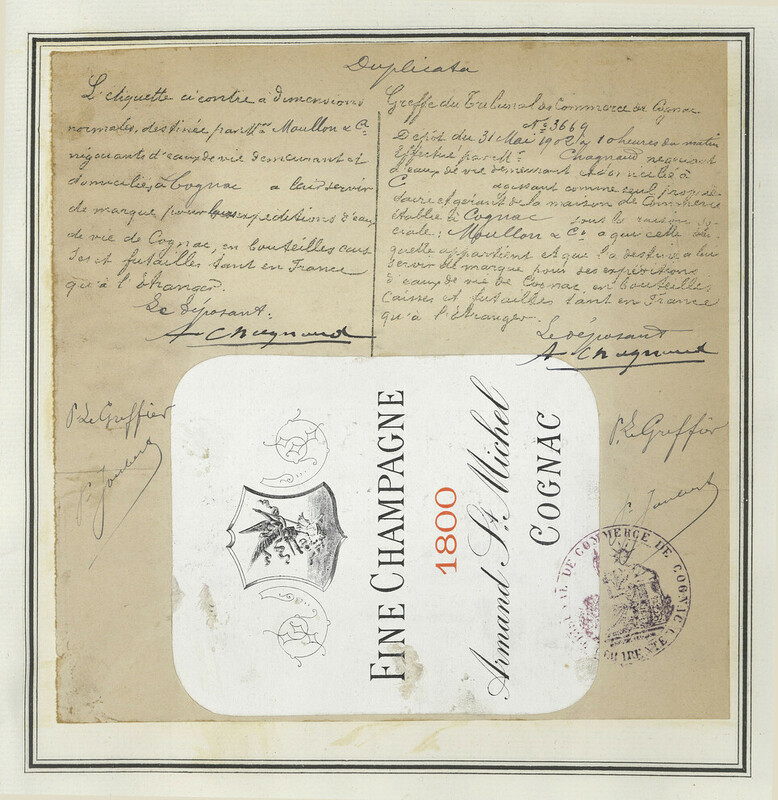 Duplicata
L'etiquette ci contre a dimensions
normales, destinée par M.rs Moullon & Cie
négociants d'eaux de vie demeurant et
domiciliés à Cognac a lui servir
de marque pour expeditions d'eaux
de vie de Cognac, en bouteilles cais
ses et futailles tant en France
qu'à l'étranger.
Le déposant:
A Chagnaud
P. Le Greffier
P. Joubert
Greffe du Tribunal de Commerce de Cognac
N° 3669
Dépôt du 31 Mai 1902 à 10 heures du matin
Effectué par Mr Chagnaud négociant
d'eaux de vie demeurant et domicilié à
C agissant comme seul proprié
taire et gérant de la maison de Commerce
établie à Cognac sous la raison so
ciale: Moullon & Cie a qui cette éti
quette appartient et que l'a destiné a lui
servir de marque pour ses expéditions
d'eaux de vie de Cognac en bouteilles
caisses et futailles tant en France
qu'à l'étranger.
Le déposant
A Chagnaud
P. Le Greffier
P. Joubert
FINE CHAMPAGNE
1800
Armand St. Michel
COGNAC
DE COMMERCE DE COGNAC
CHARENTE